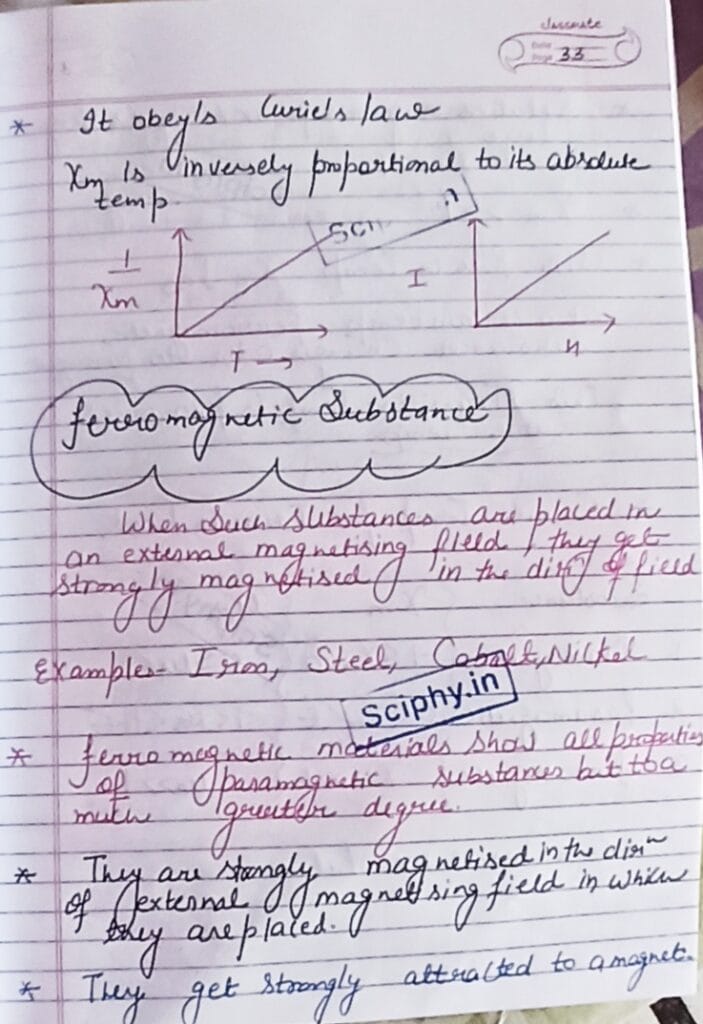 classmate
Date
Page 33
* It obeyls Curie's law
Xm is inversely propartional to its absolute
temp.
1
Xm
T →
I
H
ferromagnetic Substance
When such substances are placed in
an external magnetising field, they get
strongly magnetised in the dirn of field
Examples- Iron, Steel, Cobalt, Nickel
Sciphy.in
* ferro megnetic materials show all properties
of paramagnetic substances but to a
much greater degree.
* They are stongly magnetised in the dirn
of external magnetising field in which
they are placed.
* They get strongly attracted to a magnet.